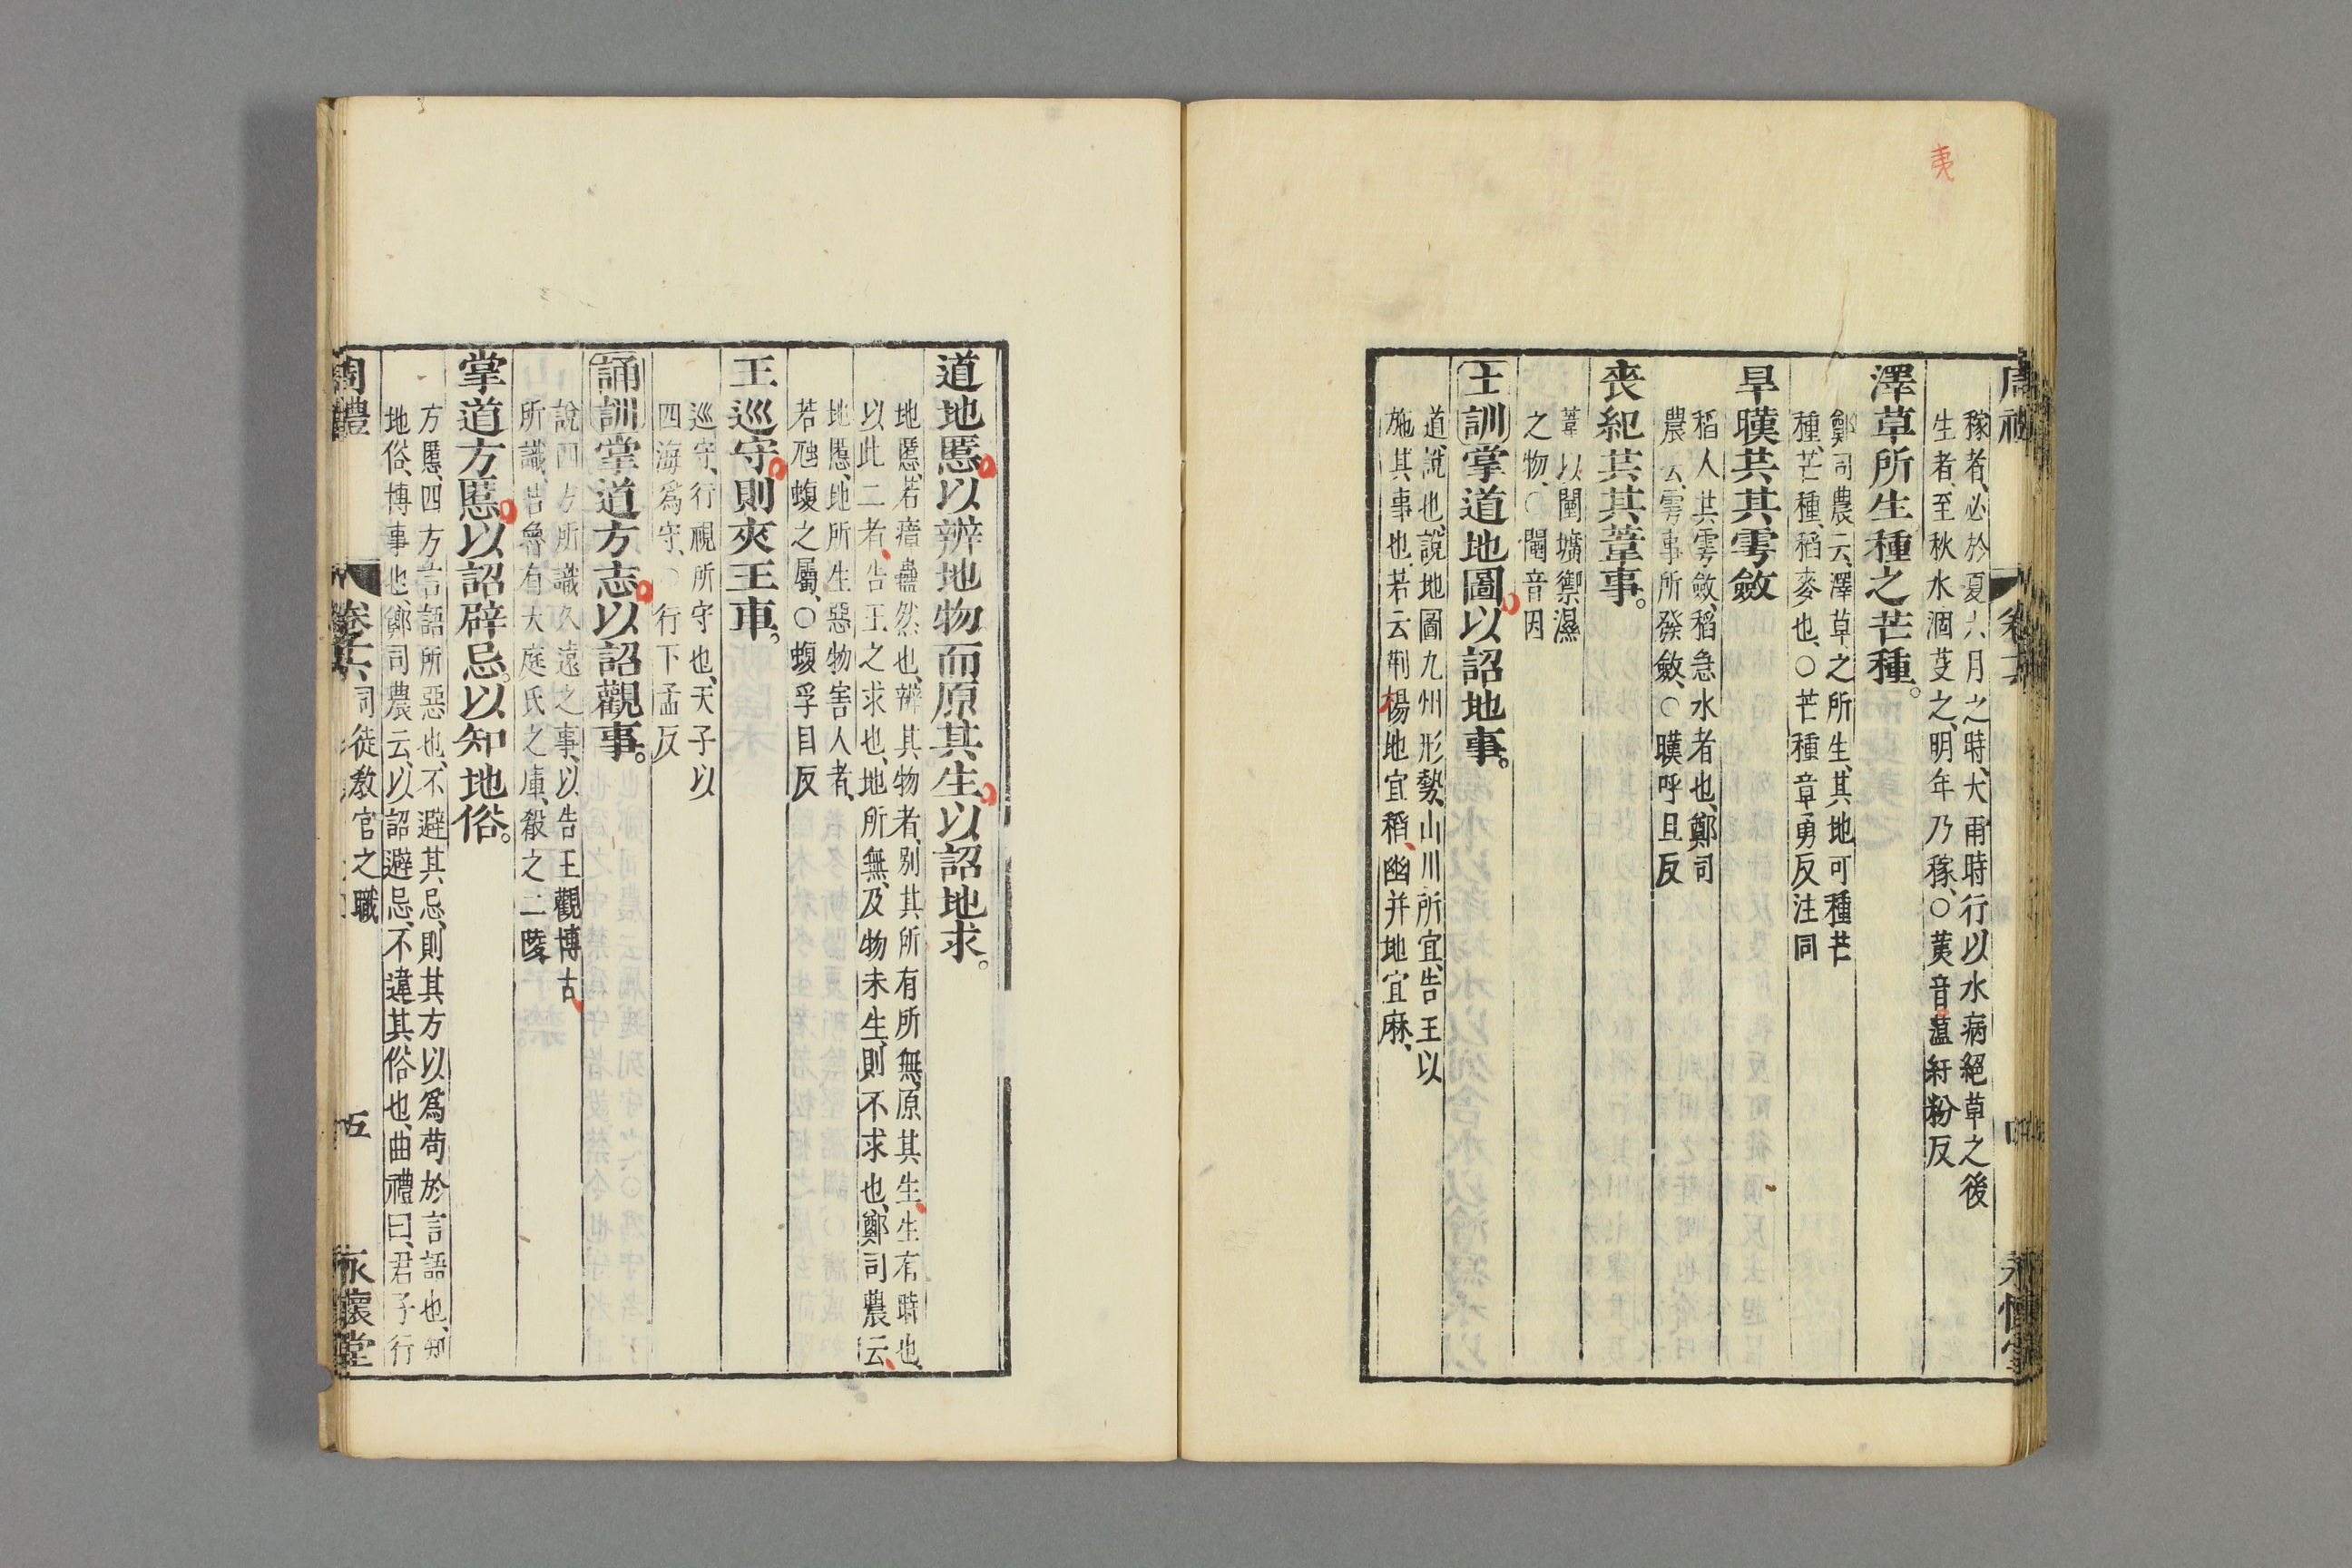 夷
周禮 卷六 四 永懷堂
稼者、必於夏六月之時、大雨時行、以水病絕草之後
生者、至秋水涸芟之、明年乃稼、○荑音蕰紆粉反
澤草所生種之芒種。
鄭司農云、澤草之所生、其地可種芒
種、芒種、稻麥也、○芒種章勇反注同
旱暵共其雩斂
稻人共雩斂、稻急水者也、鄭司
農云、雩事所發斂、○暵呼旦反
喪紀共其葦事。
葦以闉壙禦濕
之物、○闉音因
土訓掌道地圖以詔地事。
道、說也、說地圖九州形勢、山川所宜、告王以
施其事也、若云荊楊地宜稻、幽并地宜麻、
道地慝以辨地物而原其生以詔地求。
地慝、若瘴蠱然也、辨其物者、別其所有所無、原其生、生有時也、
以此二者、告王之求也、地所無、及物未生、則不求也、鄭司農云、
地慝、地所生惡物害人者、
若虺蝮之屬、○蝮孚目反
王巡守則夾王車。
巡守、行視所守也、天子以
四海爲守、○行下孟反
誦訓掌道方志以詔觀事。
說四方所識久遠之事、以告王觀博古
所識、若魯有大庭氏之庫、殽之二陵、
掌道方慝以詔辟忌。以知地俗。
方慝、四方言語所惡也、不避其忌、則其方以爲苟於言語也、知
地俗、博事也、鄭司農云、以詔避忌、不違其俗也、曲禮曰、君子行
周禮 卷六 司徒教官之職 五 永懷堂